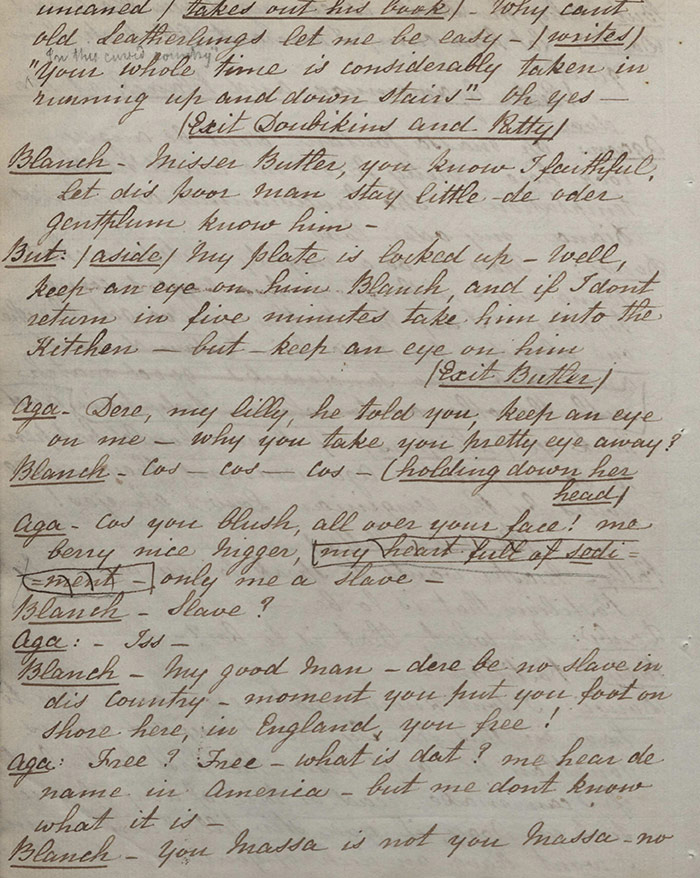 uncaned / takes out his book / - Why cant
old Leatherlungs let me be easy - / writes /
In this curid country"
"Your whole time is considerably taken in
running up and down stairs" - Oh yes -
/ Exit Doubikins and Patty /
Blanch - Misser Butler, you know I faithful,
let dis poor man stay little - de oder
gentplum know him -
But: / aside / My plate is locked up - Well,
keep an eye on him Blanch, and if I dont
return in five minutes take him into the
Kitchen - but - keep an eye on him
/ Exit Butler /
Aga - Dere, my lilly, he told you, keep an eye
on me - why you take you pretty eye away?
Blanch - Cos - cos - cos - ( holding down her
head /
Aga - Cos you blush, all over your face! me
berry nice nigger, my heart full of sedi =
= ment - only me a slave -
Blanch - Slave?
Aga: - Iss -
Blanch - My good man - dere be no slave in
dis Country - moment you put you foot on
shore here, in England, you free!
Aga: Free? Free - what is dat? me hear de
name in America - but me dont know
what it is -
Blanch - You Massa is not you Massa - no